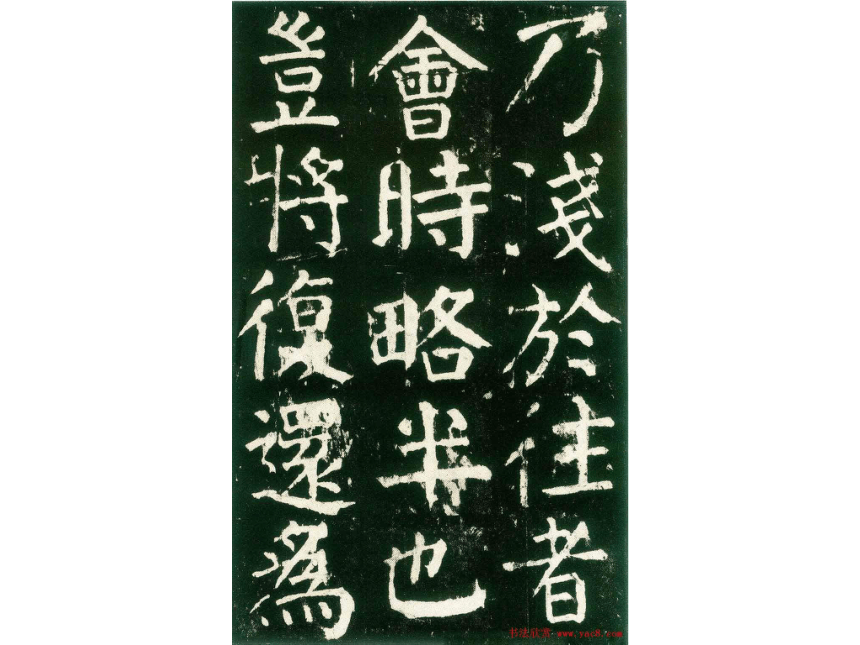 乃淺於往者
會時略半也
豈將復還爲
书法欣赏 www.yac8.com